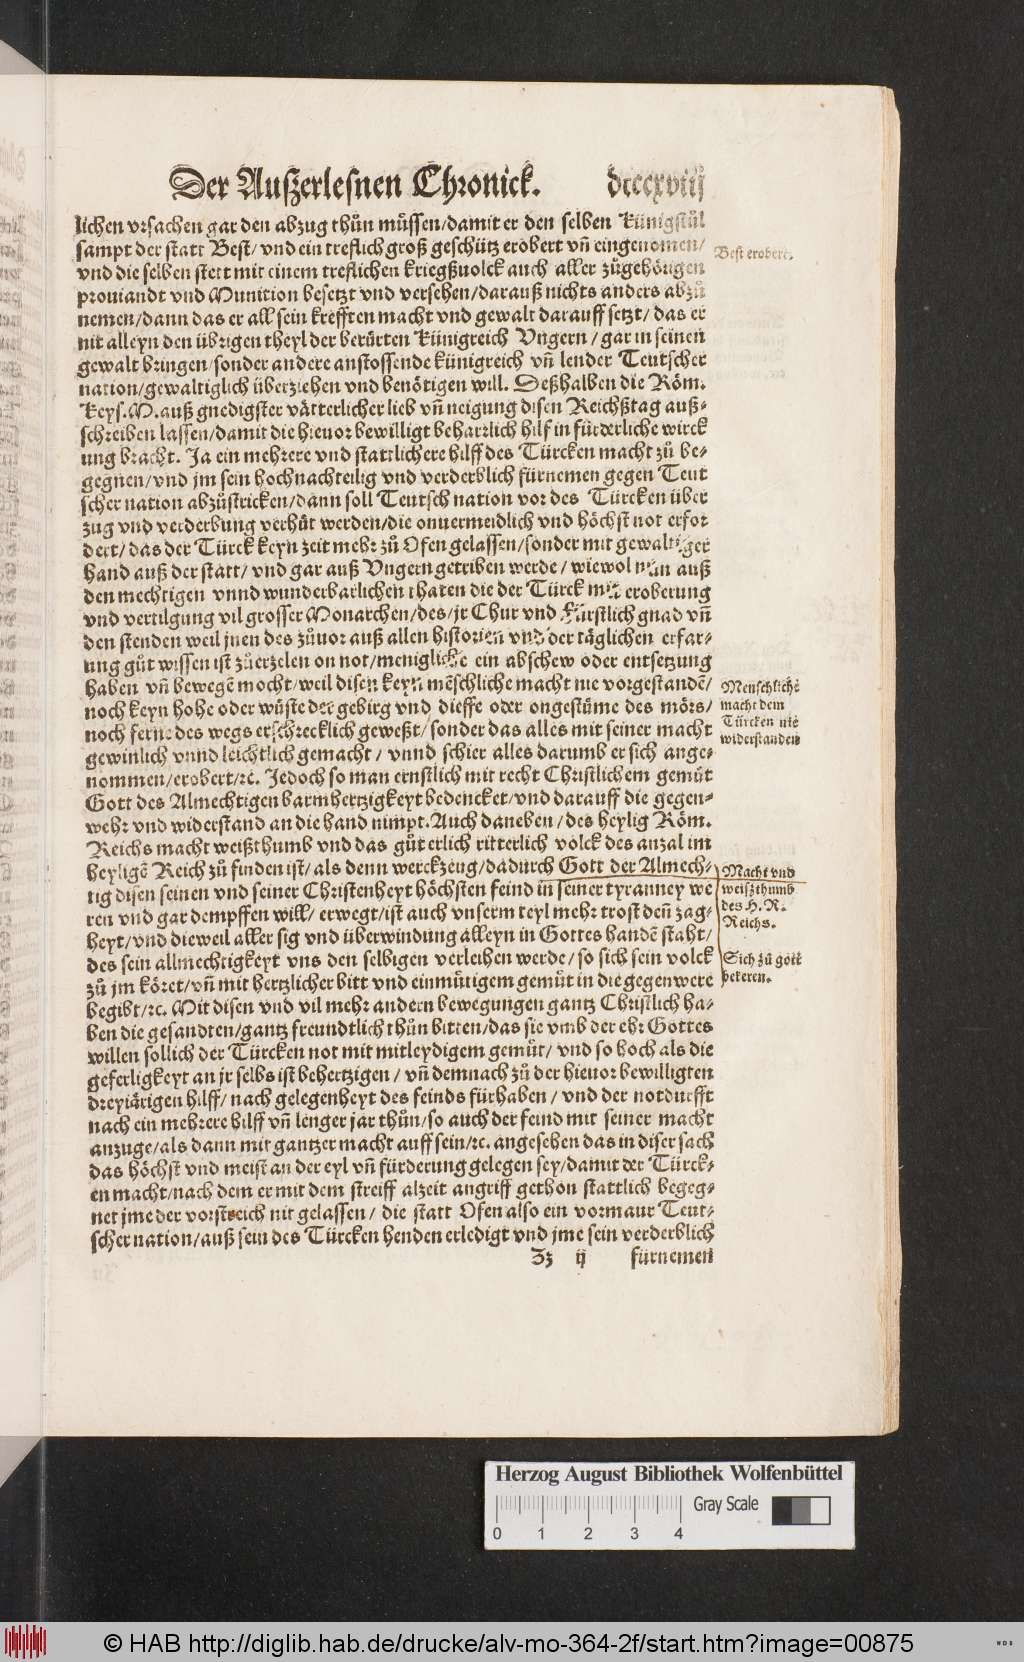 Der Außerlesnen Chronick. dcccxviij
lichen vrsachen gar den abzug thůn můssen/damit er den selben Künigstůl
sampt der statt Best/ vnd ein treflich groß geschütz erobert vñ eingenomen/
Best erobert.
vnd die selben stett mit einem treflichen kriegßuolck auch aller zůgehörigen
prouiandt vnd Munition besetzt vnd versehen/darauß nichts anders abzů
nemen/dann das er all sein krefften macht vnd gewalt darauff setzt/ das er
nit alleyn den übrigen theyl der berürten Künigreich Vngern/ gar in seinen
gewalt bringen/sonder andere anstossende künigreich vñ lender Teutscher
nation/gewaltiglich überziehen vnd benötigen will. Deßhalben die Röm.
Keys. M. auß gnedigster vätterlicher lieb vñ neigung disen Reichßtag auß-
schreiben lassen/damit die hieuor bewilligt beharrlich hilf in fürderliche wirck
ung bracht. Ja ein mehrere vnd stattlichere hilff des Türcken macht zů be-
gegnen/vnd jm sein hochnachteilig vnd verderblich fürnemen gegen Teut
scher nation abzůstricken/dann soll Teutsch nation vor des Türcken über
zug vnd verderbung verhüt werden/die onuermeidlich vnd höchst not erfor
dert/das der Türck keyn zeit mehr zů Ofen gelassen/sonder mit gewaltiger
hand auß der statt/ vnd gar auß Vngern getriben werde/ wiewol nůn auß
den mechtigen vnnd wunderbarlichen thaten die der Türck mit eroberung
vnd vertilgung vil grosser Monarchen/des/jr Chur vnd Fürstlich gnad vñ
den stenden weil jnen des zůuor auß allen historien vnd der täglichen erfar-
ung gůt wissen ist zůerzelen on not/menigliche ein abschew oder entsetzung
haben vñ bewegẽ mocht/weil disen keyn mẽschliche macht nie vorgestandẽ/
Menschliche
macht dem
Türcken nie
widerstanden
noch keyn hohe oder wüste der gebirg vnd dieffe oder ongestüme des mörs/
noch ferne des wegs erschrecklich geweßt/sonder das alles mit seiner macht
gewinlich vnnd leichtlich gemacht/ vnnd schier alles darumb er sich ange-
nommen/erobert/ꝛc. Jedoch so man ernstlich mit recht Christlichem gemüt
Gott des Almechtigen barmhertzigkeyt bedencket/vnd darauff die gegen-
wehr vnd widerstand an die hand nimpt. Auch daneben/des heylig Röm.
Reichs macht weißthumb vnd das gůt erlich ritterlich volck des anzal im
heyligẽ Reich zů finden ist/als denn werckzeug/dadurch Gott der Almech-
Macht vnd
weiszthumb
des H. R.
Reichs.
tig disen seinen vnd seiner Christenheyt höchsten feind in seiner tyranney we
ren vnd gar dempffen will/ erwegt/ist auch vnserm teyl mehr trost deñ zag-
heyt/vnd dieweil aller sig vnd überwindung alleyn in Gottes handẽ staht/
des sein allmechtigkeyt vns den selbigen verleihen werde/so sich sein volck
Sich zů gott
bekeren.
zů jm köret/vñ mit hertzlicher bitt vnd einmütigem gemüt in die gegenwere
begibt/ꝛc. Mit disen vnd vil mehr andern bewegungen gantz Christlich ha-
ben die gesandten/gantz freundtlich thůn bitten/das sie vmb der ehr Gottes
willen sollich der Türcken not mit mitleydigem gemüt/ vnd so hoch als die
geferligkeyt an jr selbs ist behertzigen/ vñ demnach zů der hieuor bewilligten
dreyjärigen hilff/ nach gelegenheyt des feinds fürhaben/ vnd der notdurfft
nach ein mehrere hilff vñ lenger jar thůn/so auch der feind mit seiner macht
anzuge/als dann mit gantzer macht auff sein/ꝛc. angesehen das in diser sach
das höchst vnd meist an der eyl vñ fürderung gelegen sey/damit der Türck-
en macht/nach dem er mit dem streiff alzeit angriff gethon stattlich begeg-
net jme der vorstreich nit gelassen/ die statt Ofen also ein vormaur Teut-
scher nation/auß sein des Türcken henden erledigt vnd jme sein verderblich
Zz ij fürnemen
Herzog August Bibliothek Wolfenbüttel
Gray Scale
0 1 2 3 4
© HAB http://diglib.hab.de/drucke/alv-mo-364-2f/start.htm?image=00875